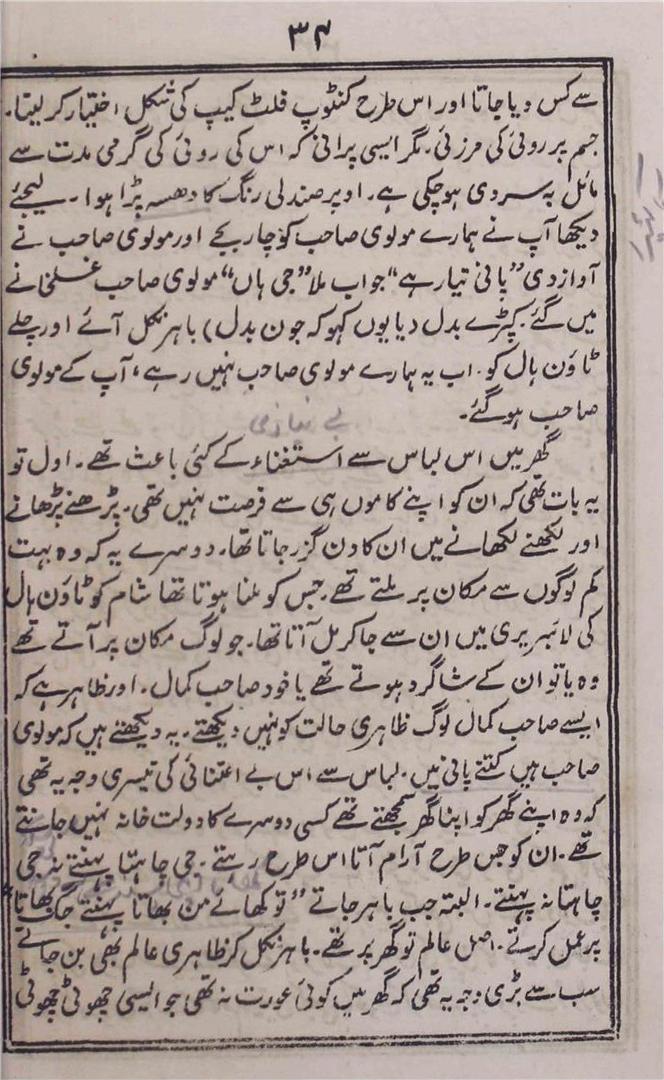 ۳۴
سے کس دیا جاتا اور اس طرح کنٹوپ فلٹ کیپ کی شکل اختیار کر لیتا۔
جسم پر روئی کی مرزئی۔ مگر ایسی پرانی کہ اس کی روئی کی گرمی مدت سے
مائل بہ سردی ہو چکی ہے۔ اوپر صندلی رنگ کا دھسہ پڑا ہوا۔ لیجئے
دیکھا آپ نے ہمارے مولوی صاحب کو چار بجے اور مولوی صاحب نے
آواز دی "پانی تیار ہے" جواب ملا "جی ہاں" مولوی صاحب غسلخانے
میں گئے۔ کپڑے بدل دیا یوں کہو کہ جون بدل) باہر نکل آئے اور چلے
ٹاؤن ہال کو۔ اب یہ ہمارے مولوی صاحب نہیں رہے، آپ کے مولوی
صاحب ہو گئے۔
بے نیازی
گھر میں اس لباس سے استغناء کے کئی باعث تھے۔ اول تو
یہ بات تھی کہ ان کو اپنے کاموں ہی سے فرصت نہیں تھی۔ پڑھنے پڑھانے
اور لکھنے لکھانے میں ان کا دن گزر جاتا تھا۔ دوسرے یہ کہ وہ بہت
کم لوگوں سے مکان پر ملتے تھے۔ جس کو ملنا ہوتا تھا شام کو ٹاؤن ہال
کی لائبریری میں ان سے جا کر مل آتا تھا۔ جو لوگ مکان پر آتے تھے
وہ یا تو ان کے شاگرد ہوتے تھے یا خود صاحب کمال۔ اور ظاہر ہے کہ
ایسے صاحب کمال لوگ ظاہری حالت کو نہیں دیکھتے۔ یہ دیکھتے ہیں کہ مولوی
صاحب ہیں کتنے پانی میں۔ لباس سے اس بے اعتنائی کی تیسری وجہ یہ تھی
کہ وہ اپنے گھر کو اپنا گھر سمجھتے تھے کسی دوسرے کا دولت خانہ نہیں جانتے
تھے۔ ان کو جس طرح آرام آتا اس طرح رہتے۔ جی چاہتا پہنتے نہ جی
چاہتا نہ پہنتے۔ البتہ جب باہر جاتے "تو کھائے من بھاتا پہنتے جگ بھاتا"
پر عمل کرتے۔ اصل عالم تو گھر پر تھے۔ باہر نکل کر ظاہری عالم بھی بن جاتے
سب سے بڑی وجہ یہ تھی کہ گھر میں کوئی عورت نہ تھی جو ایسی چھوٹی چھوٹی